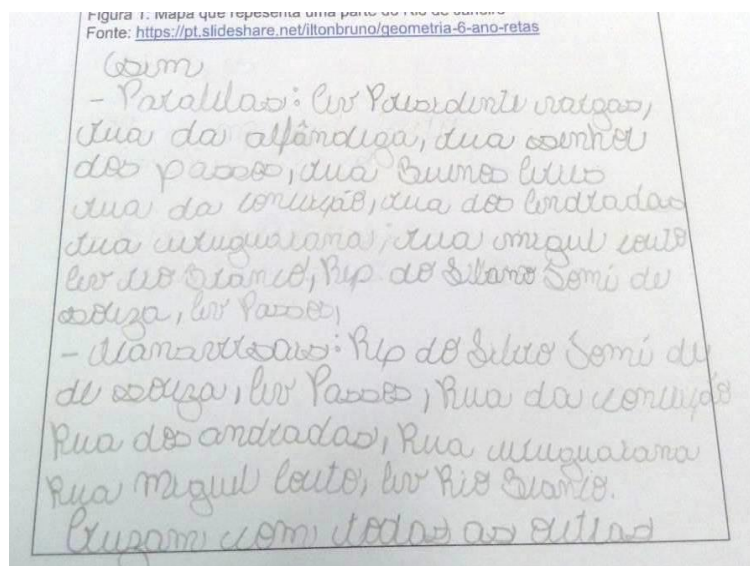 Figura 1: Mapa que repesenta uma parte do Rio de Janeiro
Fonte: https://pt.slideshare.net/iltonbruno/geometria-6-ano-retas
Sim
- Paralelas: Av Presidente vargas,
rua da alfândega, rua senhor
dos passos, rua Buenos Aires
rua da conceição, rua dos Andradas
rua uruguaiana, rua miguel couto
Av rio Branco, Rep do Líbano Tomé de
souza, Av Passos,
- : Rep do Tomé de
de souza, Av Passos, Rua da conceição
Rua dos andradas, Rua uruguaiana
Rua Miguel Couto, Av Rio Branco.
Cruzam com todas as outras